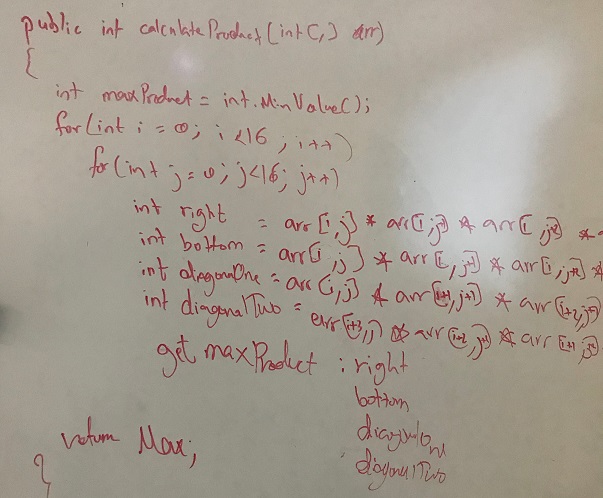 public int calculateProduct(int[,] arr)
{
int maxProduct = int.MinValue();
for(int i = 0; i<16; i++)
for(int j=0; j<16; j++)
int right = arr[i,j] * arr[i,j+1] * arr[i,j+2] *
int bottom = arr[i,j] * arr[i,j+1] * arr[i,j+2] *
int diagonalOne = arr[i,j] * arr[i+1,j+1] * arr[i+2,j+2]
int diagonalTwo = arr[i+3,j] * arr[i+2,j+1] * arr[i+1,j+2]
get maxProduct : right
bottom
diagonalOne
diagonalTwo
return Max;
}